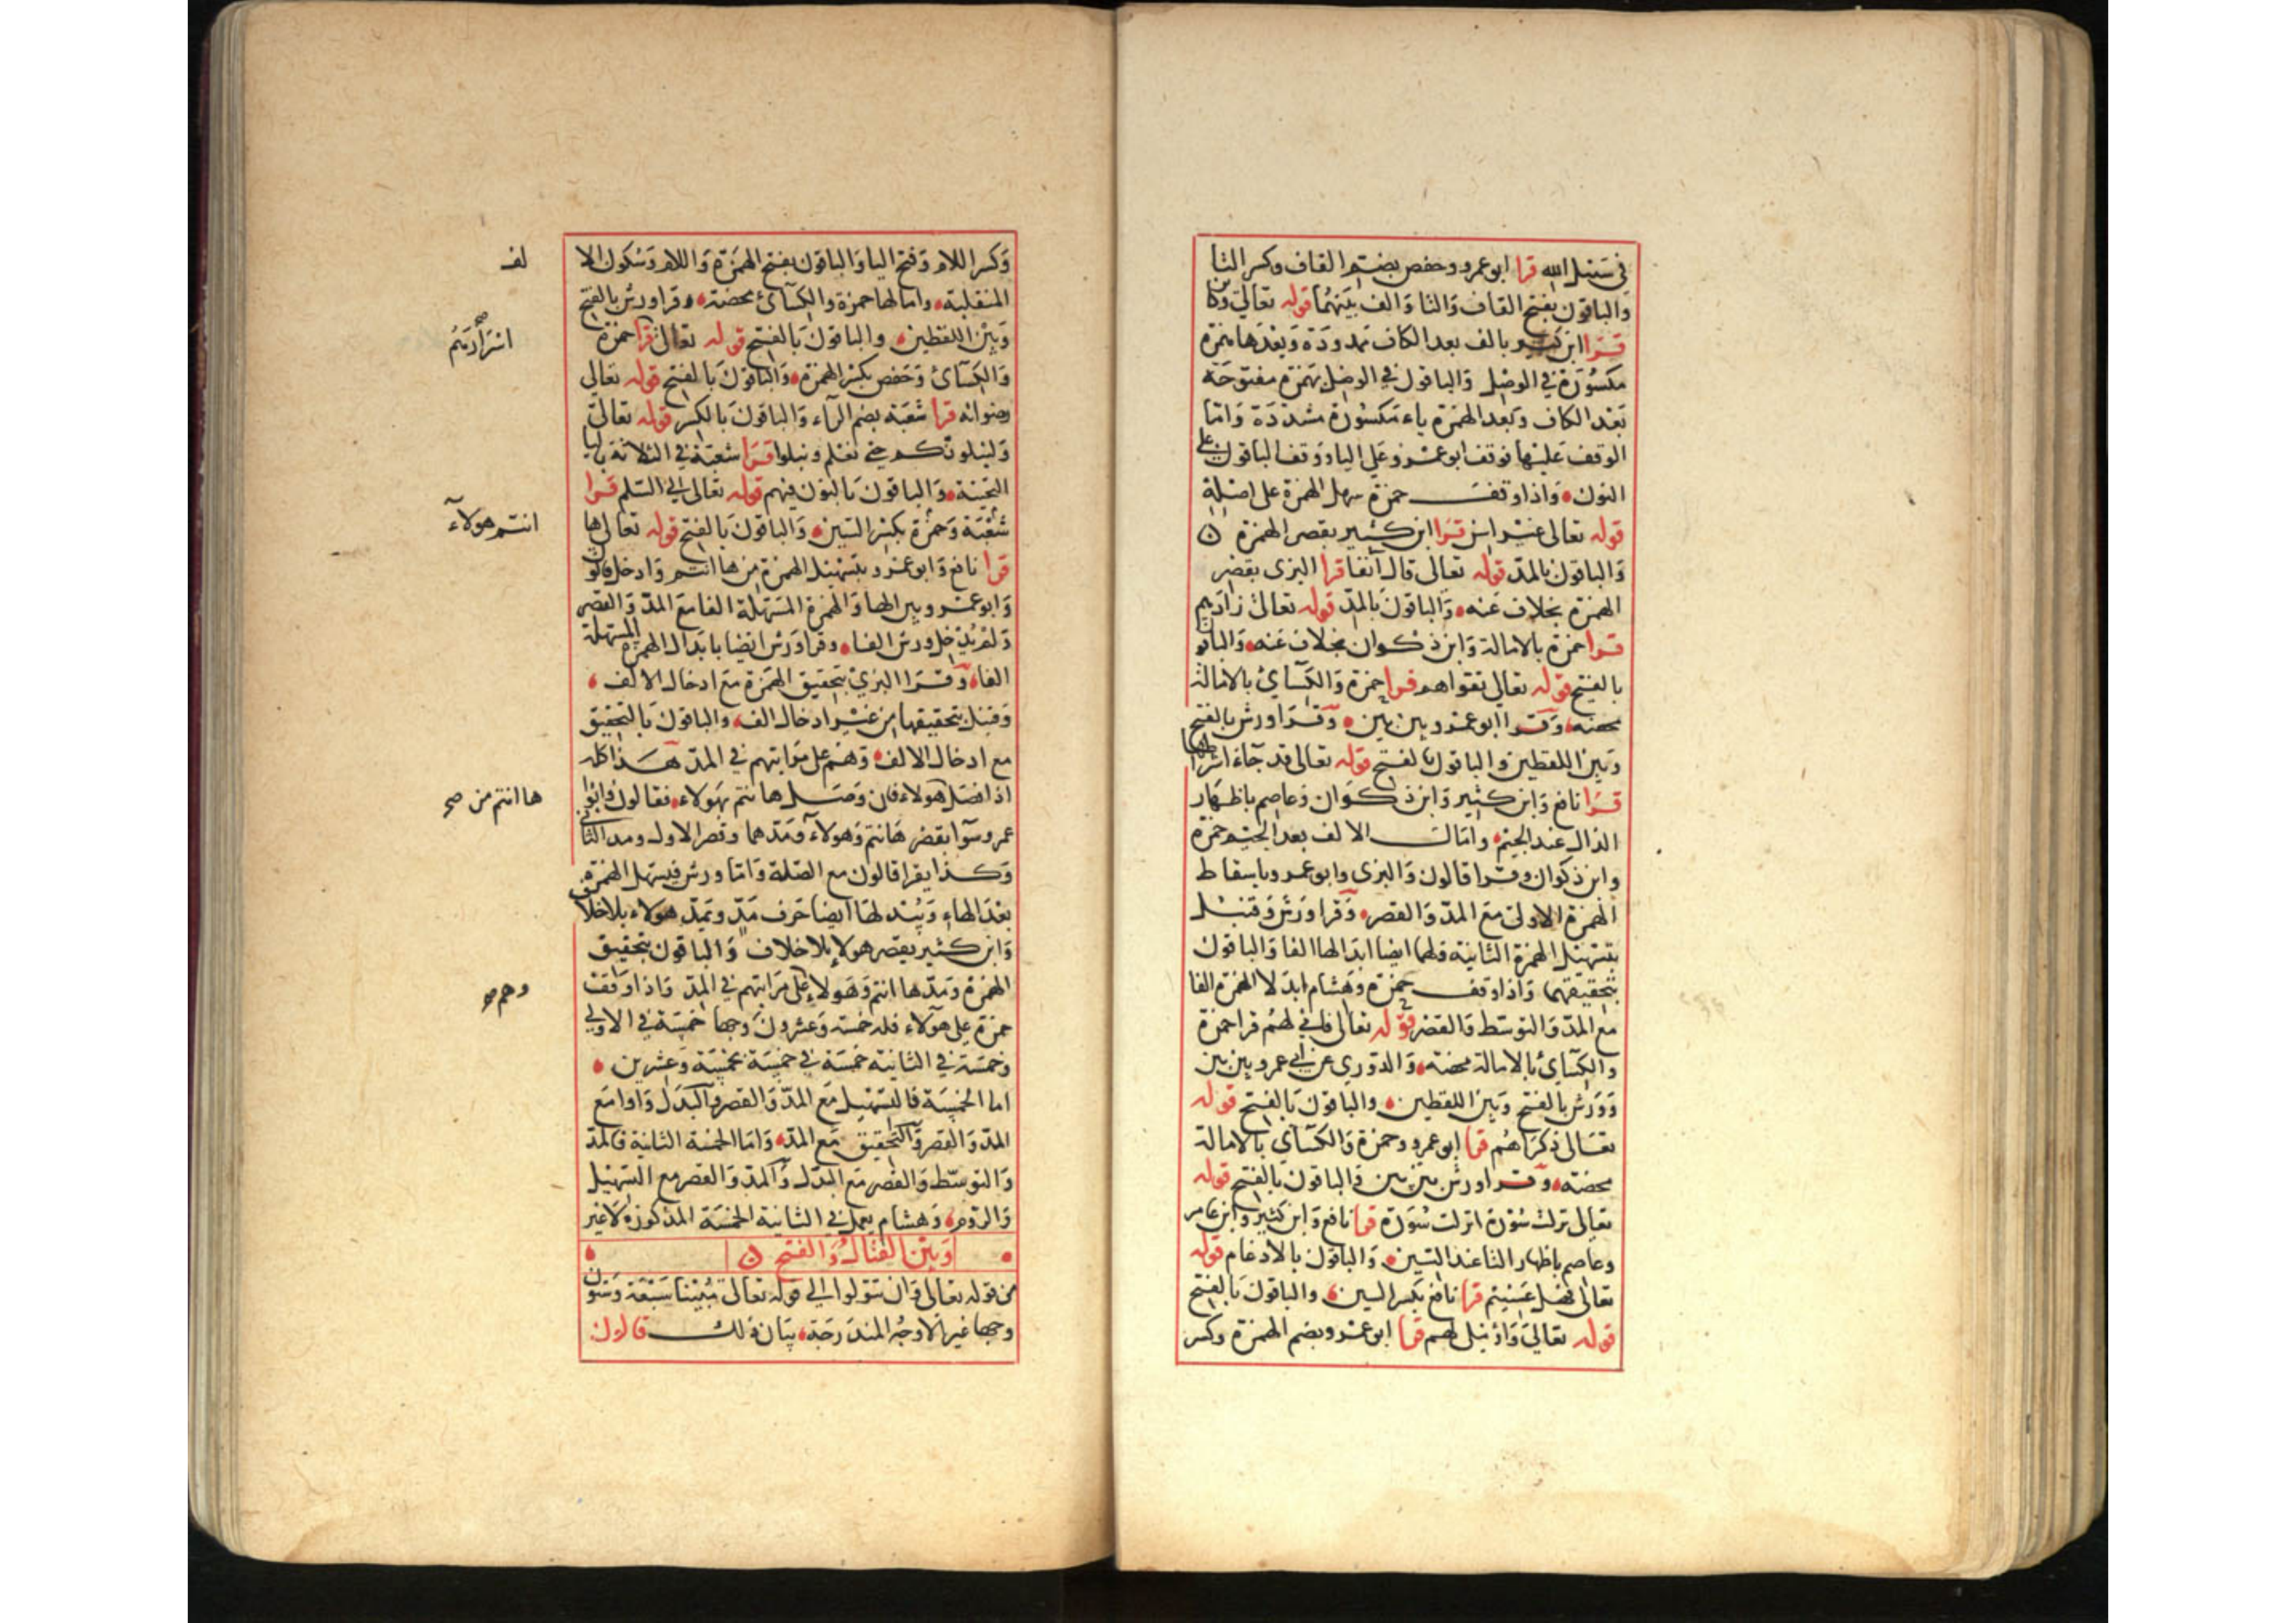 في سبيل الله قرا ابو عمرو وحفص بضم القاف وكسر التا
والباقون بفتح القاف والتا والف بينهما قوله تعالى وكاين
قرا ابن كثير بالف بعد الكاف ممدودة وبعدها همزة
مكسورة في الوصل والباقون في الوصل بهمزة مفتوحة
بعد الكاف وبعد الهمزة ياء مكسورة مشددة واما
الوقف عليها فوقف ابو عمرو على الياء ووقف الباقون على
النون واذا وقف حمزة سهل الهمزة على اصله
قوله تعالى غير اسن قرا ابن كثير بقصر الهمزة
والباقون بالمد قوله تعالى قال آنفا قرا البزى بقصر
الهمزة بخلاف عنه والباقون بالمد قوله تعالى زادهم
قرا حمزة بالامالة وابن ذكوان بخلاف عنه والباقون
بالفتح قوله تعالى تقواهم قرا حمزة والكسآئ بالامالة
محضة وقرا ابو عمرو بين بين وقرا ورش بالفتح
وبين اللفظين والباقون بالفتح قوله تعالى قد جآء اشراطها
قرا نافع وابن كثير وابن ذكوان وعاصم باظهار
الذال عند الجيم وامال الالف بعد الجيم حمزة
وابن ذكوان وقرا قالون والبزى وابو عمرو باسقاط
الهمزة الاولى مع المد والقصر وقرا ورش وقنبل
بتسهيل الهمزة الثانية ولهما ايضا ابدالها الفا والباقون
بتحقيقهما واذا وقف حمزة وهشام ابدلا الهمزة الفا
مع المد والتوسط والقصر قوله تعالى فاني لهم قرا حمزة
والكسآئ بالامالة محضة والدوري عن ابي عمرو بين بين
وورش بالفتح وبين اللفظين والباقون بالفتح قوله
تعالى ذكراهم قرا ابو عمرو وحمزة والكسآئ بالامالة
محضة وقرا ورش بين بين والباقون بالفتح قوله
تعالى نزلت سورة انزلت سورة قرا نافع وابن كثير وابن عامر
وعاصم باظهار التا عند السين والباقون بالادغام قوله
تعالى فهل عسيتم قرا نافع بكسر السين والباقون بالفتح
قوله تعالى واملى لهم قرا ابو عمرو بضم الهمزة وكسر
وكسر اللام وفتح اليا والباقون بفتح الهمزة واللام وسكون الا
لف
المنقلبة وامالها حمزة والكسآئ محضة وقرا ورش بالفتح
وبين اللفظين والباقون بالفتح قوله تعالى قرا حمزة
اسرارهم صح
والكسآئ وحفص بكسر الهمزة والباقون بالفتح قوله تعالى
رضوانه قرا شعبة بضم الرآء والباقون بالكسر قوله تعالى
ولنبلونكم حتى نعلم ونبلوا قرا شعبة في الثلاثة باليا
التحتية والباقون بالنون فيهم قوله تعالى الى السلم قرا
شعبة وحمزة بكسر السين والباقون بالفتح قوله تعالى ها
انتم هولآء
قرا نافع وابو عمرو بتسهيل الهمزة من ها انتم وادخل قالون
وابو عمرو بين الها والهمزة المسهلة الفا مع المد والقصر
ولم يدخل ورش الفا وقرا ورش ايضا بابدال الهمزة المسهلة
الفا وقرا البزيُ بتحقيق الهمزة مع ادخال الالف
وقنبل بتحقيقها من غير ادخال الف والباقون بالتحقيق
مع ادخال الالف وهم على مراتبهم في المد هذا كله
اذا فصل هولاء فان وصل ها نتم بهولاء فقالون وابو
ها انتم من صح
عمرو سوآ بقصر هانتم وهولآء ومدهما وقصر الاول ومد الثاني
وكذا يقرا قالون مع الصلة واما ورش فيسهل الهمزة
بعد الهاء ويبدلها ايضا حرف مد ويمد هولاء بلا خلاف
وابن كثير يقصر هولا بلا خلاف والباقون بتحقيق
الهمزة ومد ها انتم وهولاء على مراتبهم في المد واذا وقف
وهم صح
حمزة على هولآء فله خمسة وعشرون وجها خمسة في الاولى
وخمسة في الثانية خمسة في خمسة بخمسة وعشرين
اما الخمسة فالتسهيل مع المد والقصر والبدل واوا مع
المد والقصر والتحقيق مع المد واما الخمسة الثانية فالمد
والتوسط والقصر مع البدل والمد والقصر مع التسهيل
والروم وهشام يعمل في الثانية الخمسة المذكورة لا غير
وبين القتال والفتح
من قوله تعالى وان تتولوا الى قوله تعالى مبينا سبعة وستون
وجها غير الاوجه المندرجة بيان ذلك قالون